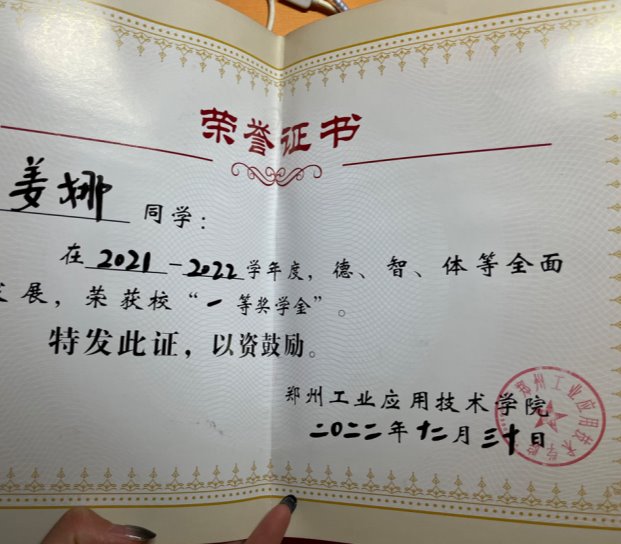 荣誉证书
姜娜 同学：
在2021-2022学年度，德、智、体等全面
发展，荣获校“一等奖学金”。
特发此证，以资鼓励。
郑州工业应用技术学院
二〇二二年十二月三十日
郑州工业应用技术学院